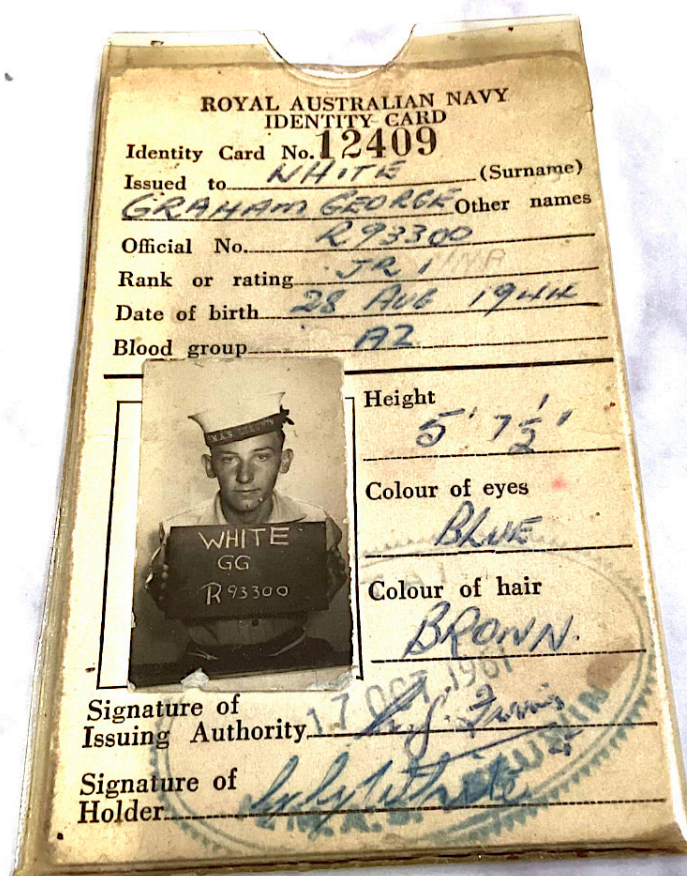 ROYAL AUSTRALIAN NAVY
IDENTITY CARD
Identity Card No. 12409
Issued to WHITE (Surname)
GRAHAM GEORGE Other names
Official No. R93300
Rank or rating JR 1
Date of birth 28 AUG 1944
Blood group A2
Height
5' 7½'
Colour of eyes
BLUE
Colour of hair
BROWN.
WHITE
GG
R93300
17 OCT 1961
Signature of
Issuing Authority
Signature of
Holder G G White
H.M.A.S.